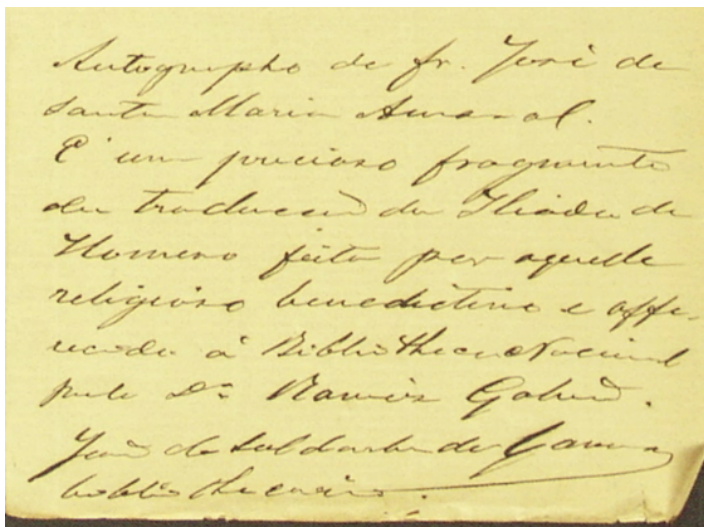 Autographo de fr. José de
Santa Maria Amaral.
E' um precioso fragmento
da traducção da Iliada de
Homero feita por aquelle
religioso benedictino e offe-
recida á Bibliotheca Nacional
pelo Dr. Ramiz Galvão.
João de Saldanha da Gama
bibliothecario.